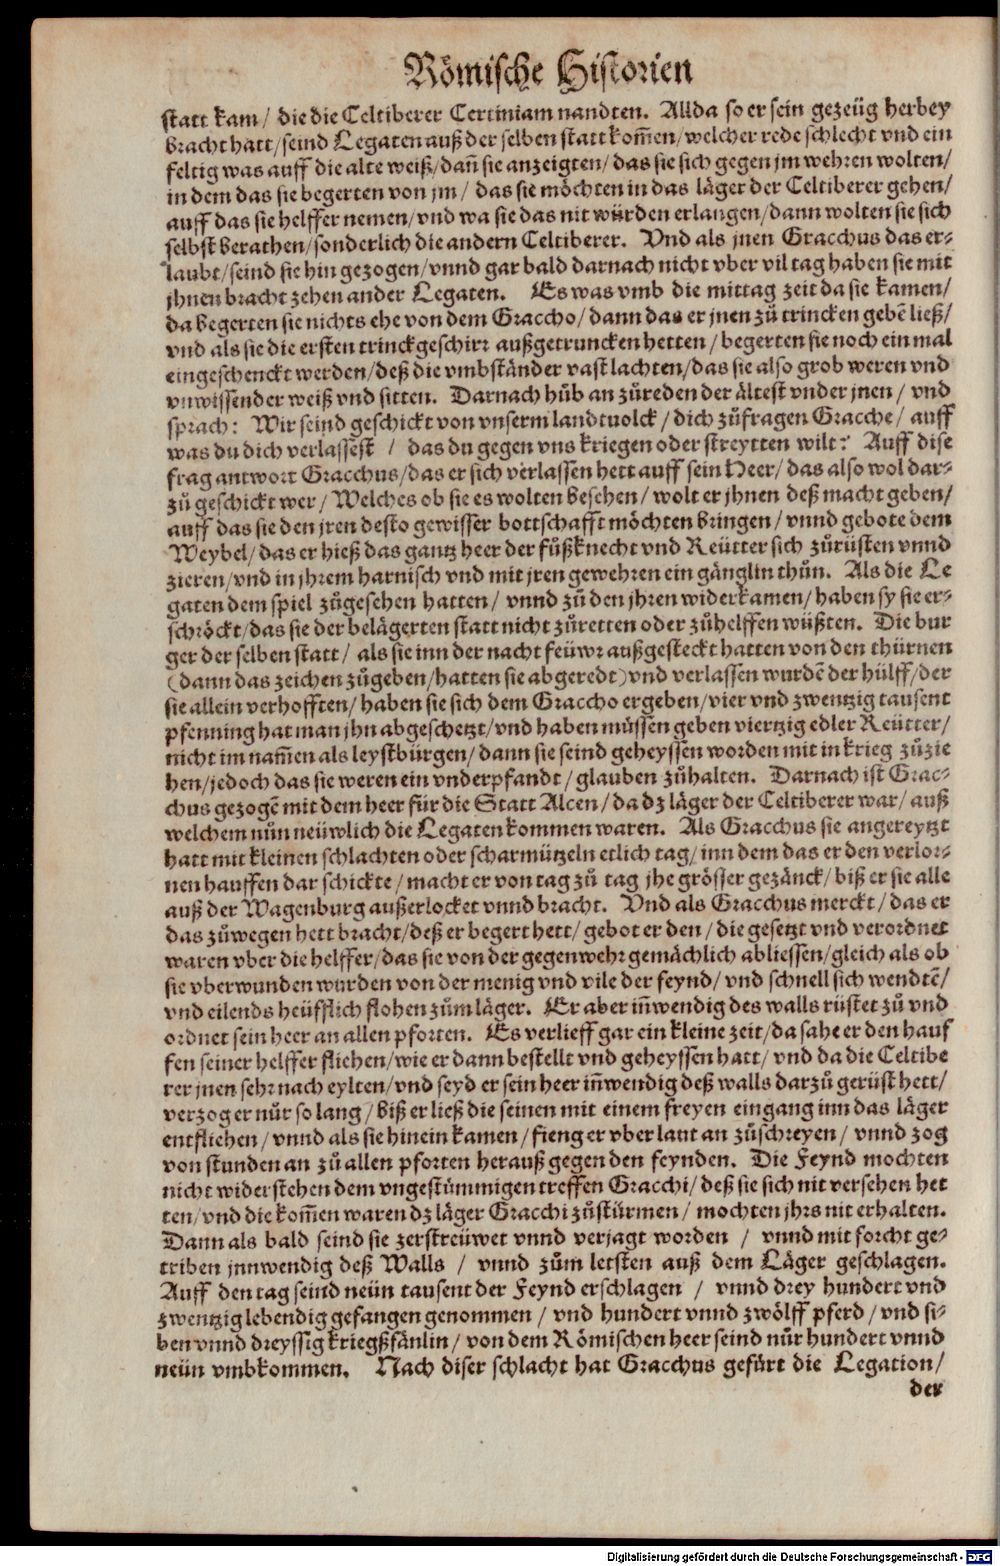 Römische Historien
statt kam / die die Celtiberer Certiniam nandten. Allda so er sein gezeüg herbey
bracht hatt / seind Legaten auß der selben statt kom̃en / welcher rede schlecht vnd ein
feltig was auff die alte weiß / dañ sie anzeigten / das sie sich gegen jm wehren wolten /
in dem das sie begerten von jm / das sie möchten in das läger der Celtiberer gehen /
auff das sie helffer nemen / vnd wa sie das nit würden erlangen / dann wolten sie sich
selbst berathen / sonderlich die andern Celtiberer. Vnd als jnen Gracchus das er⸗
laubt / seind sie hin gezogen / vnnd gar bald darnach nicht vber vil tag haben sie mit
jhnen bracht zehen ander Legaten. Es was vmb die mittag zeit da sie kamen /
da begerten sie nichts ehe von dem Graccho / dann das er jnen zů trincken gebẽ ließ /
vnd als sie die ersten trinckgeschirr außgetruncken hetten / begerten sie noch ein mal
eingeschenckt werden / deß die vmbständer vast lachten / das sie also grob weren vnd
vnwissender weiß vnd sitten. Darnach hůb an zůreden der ältest vnder jnen / vnd
sprach: Wir seind geschickt von vnserm landtuolck / dich zůfragen Gracche / auff
was du dich verlassest / das du gegen vns kriegen oder streytten wilt? Auff dise
frag antwort Gracchus / das er sich verlassen hett auff sein Heer / das also wol dar⸗
zů geschickt wer / Welches ob sie es wolten besehen / wolt er jhnen deß macht geben /
auff das sie den jren desto gewisser bottschafft möchten bringen / vnnd gebote dem
Weybel / das er hieß das gantz heer der fůßknecht vnd Reütter sich zůrüsten vnnd
zieren / vnd in jhrem harnisch vnd mit jren gewehren ein gänglin thůn. Als die Le
gaten dem spiel zůgesehen hatten / vnnd zů den jhren widerkamen / haben sy sie er⸗
schröckt / das sie der belägerten statt nicht zůretten oder zůhelffen wüßten. Die bur
ger der selben statt / als sie inn der nacht feüwr außgesteckt hatten von den thürnen
(dann das zeichen zůgeben / hatten sie abgeredt) vnd verlassen wurdẽ der hülff / der
sie allein verhofften / haben sie sich dem Graccho ergeben / vier vnd zwentzig tausent
pfenning hat man jhn abgeschetzt / vnd haben müssen geben viertzig edler Reütter /
nicht im nam̃en als leystbürgen / dann sie seind geheyssen worden mit in krieg zůzie
hen / jedoch das sie weren ein vnderpfandt / glauben zůhalten. Darnach ist Grac⸗
chus gezogẽ mit dem heer für die Statt Alcen / da dz läger der Celtiberer war / auß
welchem nůn neüwlich die Legaten kommen waren. Als Gracchus sie angereytzt
hatt mit kleinen schlachten oder scharmützeln etlich tag / inn dem das er den verlor⸗
nen hauffen dar schickte / macht er von tag zů tag jhe grösser gezänck / biß er sie alle
auß der Wagenburg außerlocket vnnd bracht. Vnd als Gracchus merckt / das er
das zůwegen hett bracht / deß er begert hett / gebot er den / die gesetzt vnd verordnet
waren vber die helffer / das sie von der gegenwehr gemächlich abliessen / gleich als ob
sie vberwunden wurden von der menig vnd vile der feynd / vnd schnell sich wendtẽ /
vnd eilends heüfflich flohen zům läger. Er aber iñwendig des walls rüstet zů vnd
ordnet sein heer an allen pforten. Es verlieff gar ein kleine zeit / da sahe er den hauf
fen seiner helffer fliehen / wie er dann bestellt vnd geheyssen hatt / vnd da die Celtibe
rer jnen sehr nach eylten / vnd seyd er sein heer iñwendig deß walls darzů gerüst hett /
verzog er nůr so lang / biß er ließ die seinen mit einem freyen eingang inn das läger
entfliehen / vnnd als sie hinein kamen / fieng er vber laut an zůschreyen / vnnd zog
von stunden an zů allen pforten herauß gegen den feynden. Die Feynd mochten
nicht widerstehen dem vngestümmigen treffen Gracchi / deß sie sich nit versehen het
ten / vnd die kom̃en waren dz läger Gracchi zůstürmen / mochten jhrs nit erhalten.
Dann als bald seind sie zerstreüwet vnnd verjagt worden / vnnd mit forcht ge⸗
triben jnnwendig deß Walls / vnnd zům letsten auß dem Läger geschlagen.
Auff den tag seind neün tausent der Feynd erschlagen / vnnd drey hundert vnd
zwentzig lebendig gefangen genommen / vnd hundert vnnd zwölff pferd / vnd si⸗
ben vnnd dreyssig kriegßfänlin / von dem Römischen heer seind nůr hundert vnnd
neün vmbkommen. Nach diser schlacht hat Gracchus gefürt die Legation /
der
Digitalisierung gefördert durch die Deutsche Forschungsgemeinschaft - DFG